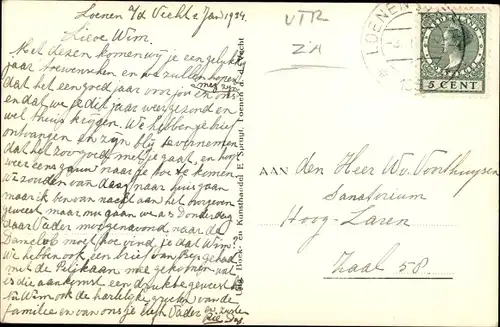 Loenen a/d Vecht 2 Jan 1934.
Lieve Wim.
Met dezen komen wij je een gelukkig
jaar toewenschen en we zullen hopen
dat het een goed jaar voor jou en ons mag zijn
en dat we je dit jaar weer gezond en
wel thuis krijgen. We hebben je brief
ontvangen en zijn blij te vernemen
dat het zoo goed met je gaat, en hoop
weer eens gauw naar je toe te komen.
We zouden van daag naar huis gaan
maar ik ben van nacht aan het
geweest maar nu gaan we a.s. Donderdag
daar Vader morgenavond naar de
moet hoe vind je dat Wim?
We hebben ook een brief van Bep gehad
met de Pelikaan mee gekomen vat
is die aankomst een drukte geweest hé
Nu Wim ook de hartelijke groeten van de
familie en van ons je Vader
Uitg. Boek- en Kunsthandel E. Spruyt, Loenen a. d. Vecht
VTR
ZH
LOENEN
5 CENT
AAN den Heer W. v. Voorthuysen
Sanatorium
Hoog-Laren
Zaal 58.